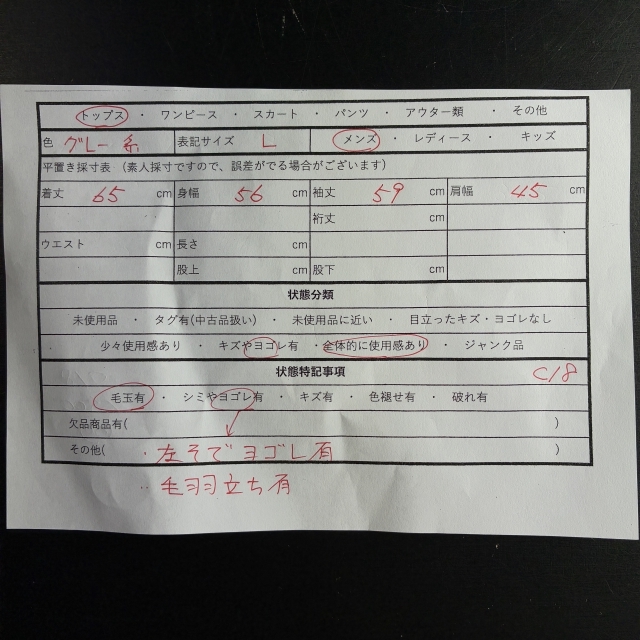 トップス ・ ワンピース ・ スカート ・ パンツ ・ アウター類 ・ その他
色 グレー系 表記サイズ L メンズ ・ レディース ・ キッズ
平置き採寸表 (素人採寸ですので、誤差がでる場合がございます)
着丈 65 cm 身幅 56 cm 袖丈 59 cm 肩幅 45 cm
裄丈 cm
ウエスト cm 長さ cm
股上 cm 股下 cm
状態分類
未使用品 ・ タグ有(中古品扱い) ・ 未使用品に近い ・ 目立ったキズ・ヨゴレなし
少々使用感あり ・ キズやヨゴレ有 ・ 全体的に使用感あり ・ ジャンク品
状態特記事項
C18
毛玉有 ・ シミやヨゴレ有 ・ キズ有 ・ 色褪せ有 ・ 破れ有
欠品商品有( )
その他( ・左そでヨゴレ有 )
・毛羽立ち有